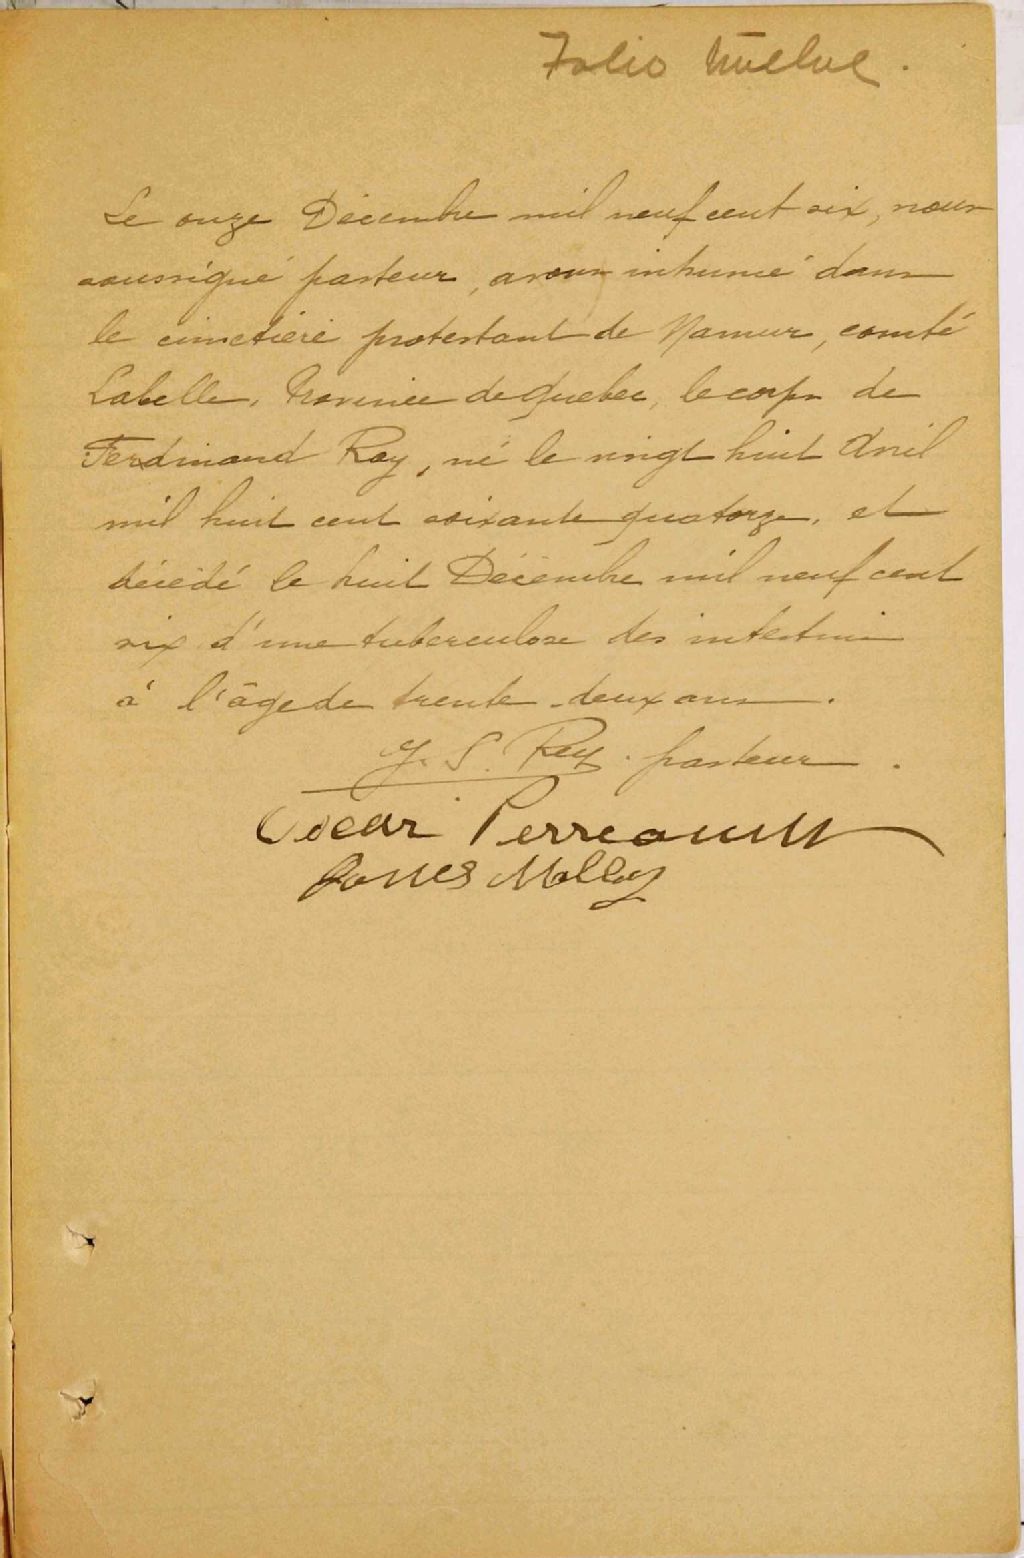 Folio Twelve.
Le onze Décembre mil neuf cent six, nous
soussigné pasteur, avons inhumé dans
le cimetière protestant de Namur, comté
Labelle, Province de Quebec, le corps de
Ferdinand Roy, né le vingt huit Avril
mil huit cent soixante quatorze, et
décédé le huit Décembre mil neuf cent
six d'une tuberculose des intestins
à l'âge de trente-deux ans.
J. S. Rey. pasteur.
Oscar Perreault
James Molloy